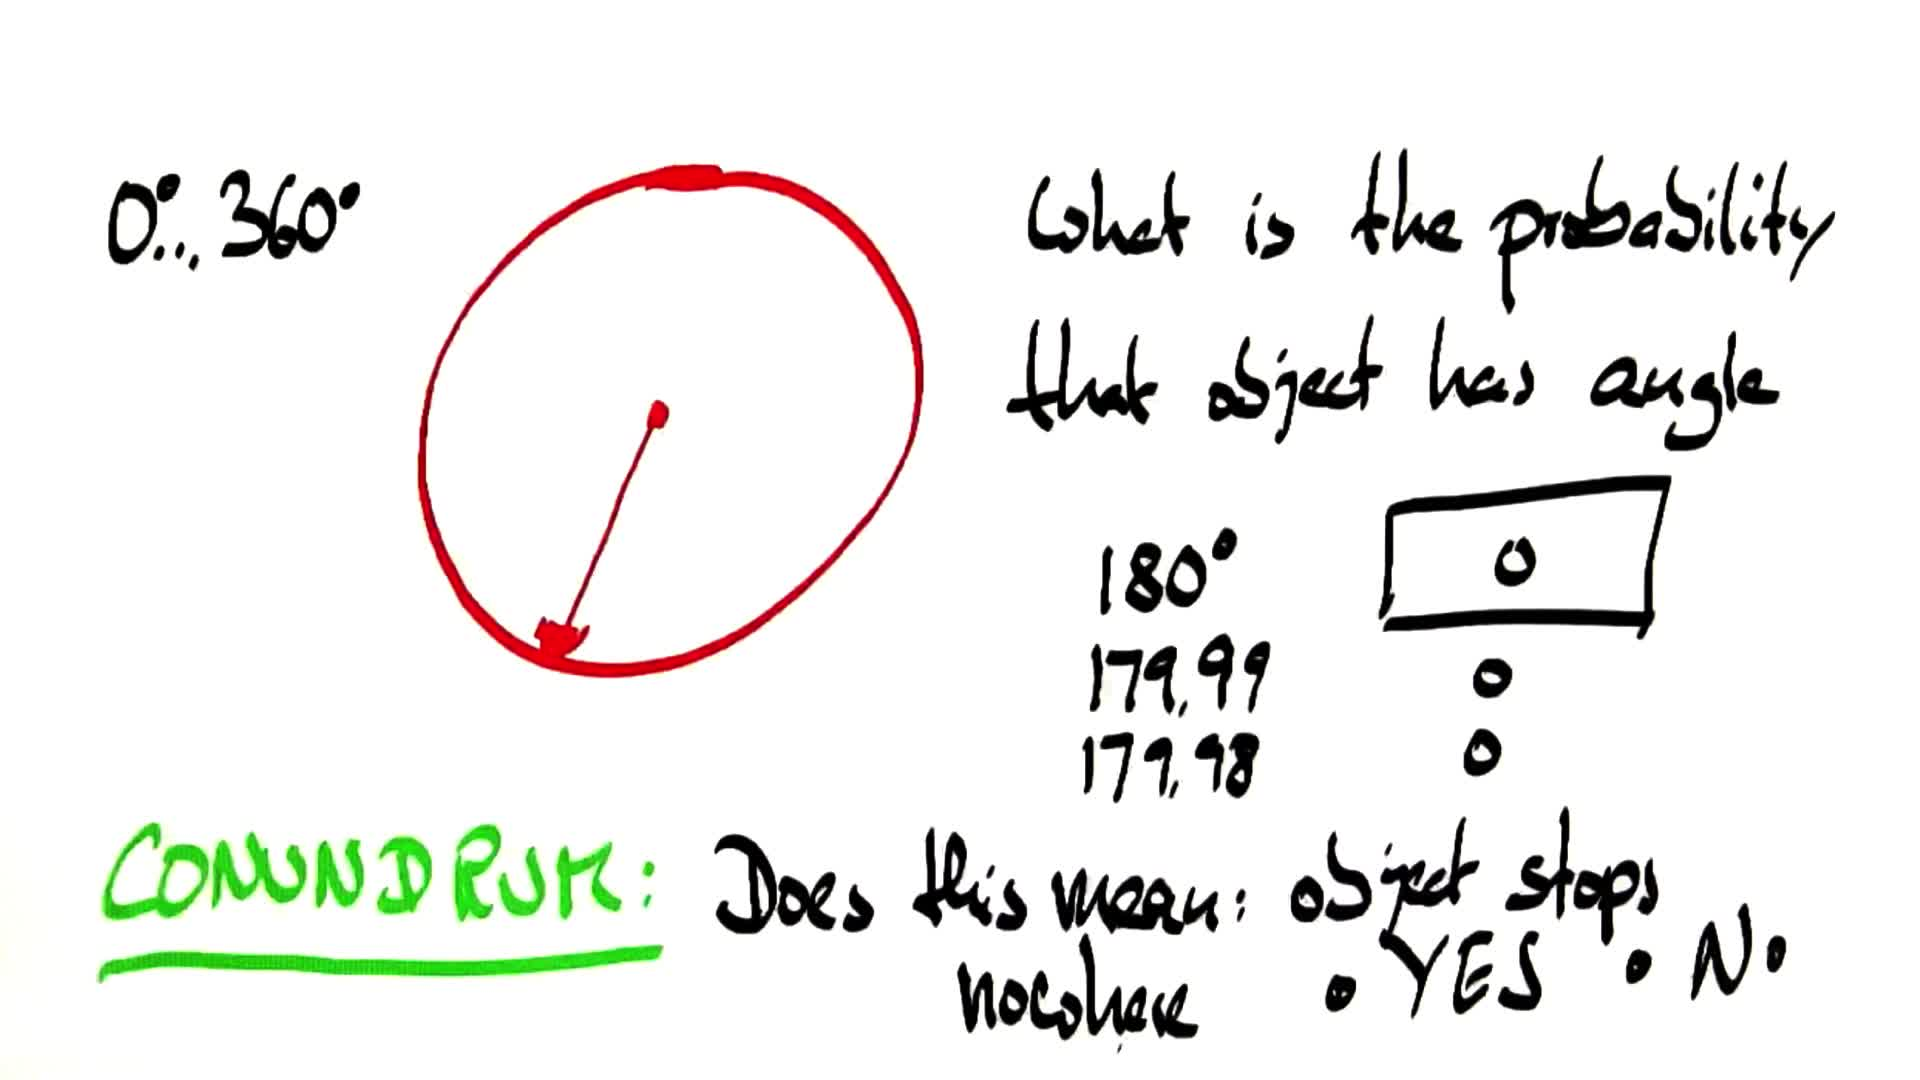 0°...360°
What is the probability
that object has angle
180° 0
179.99 0
179.98 0
CONUNDRUM: Does this mean: object stops
nowhere o YES o No